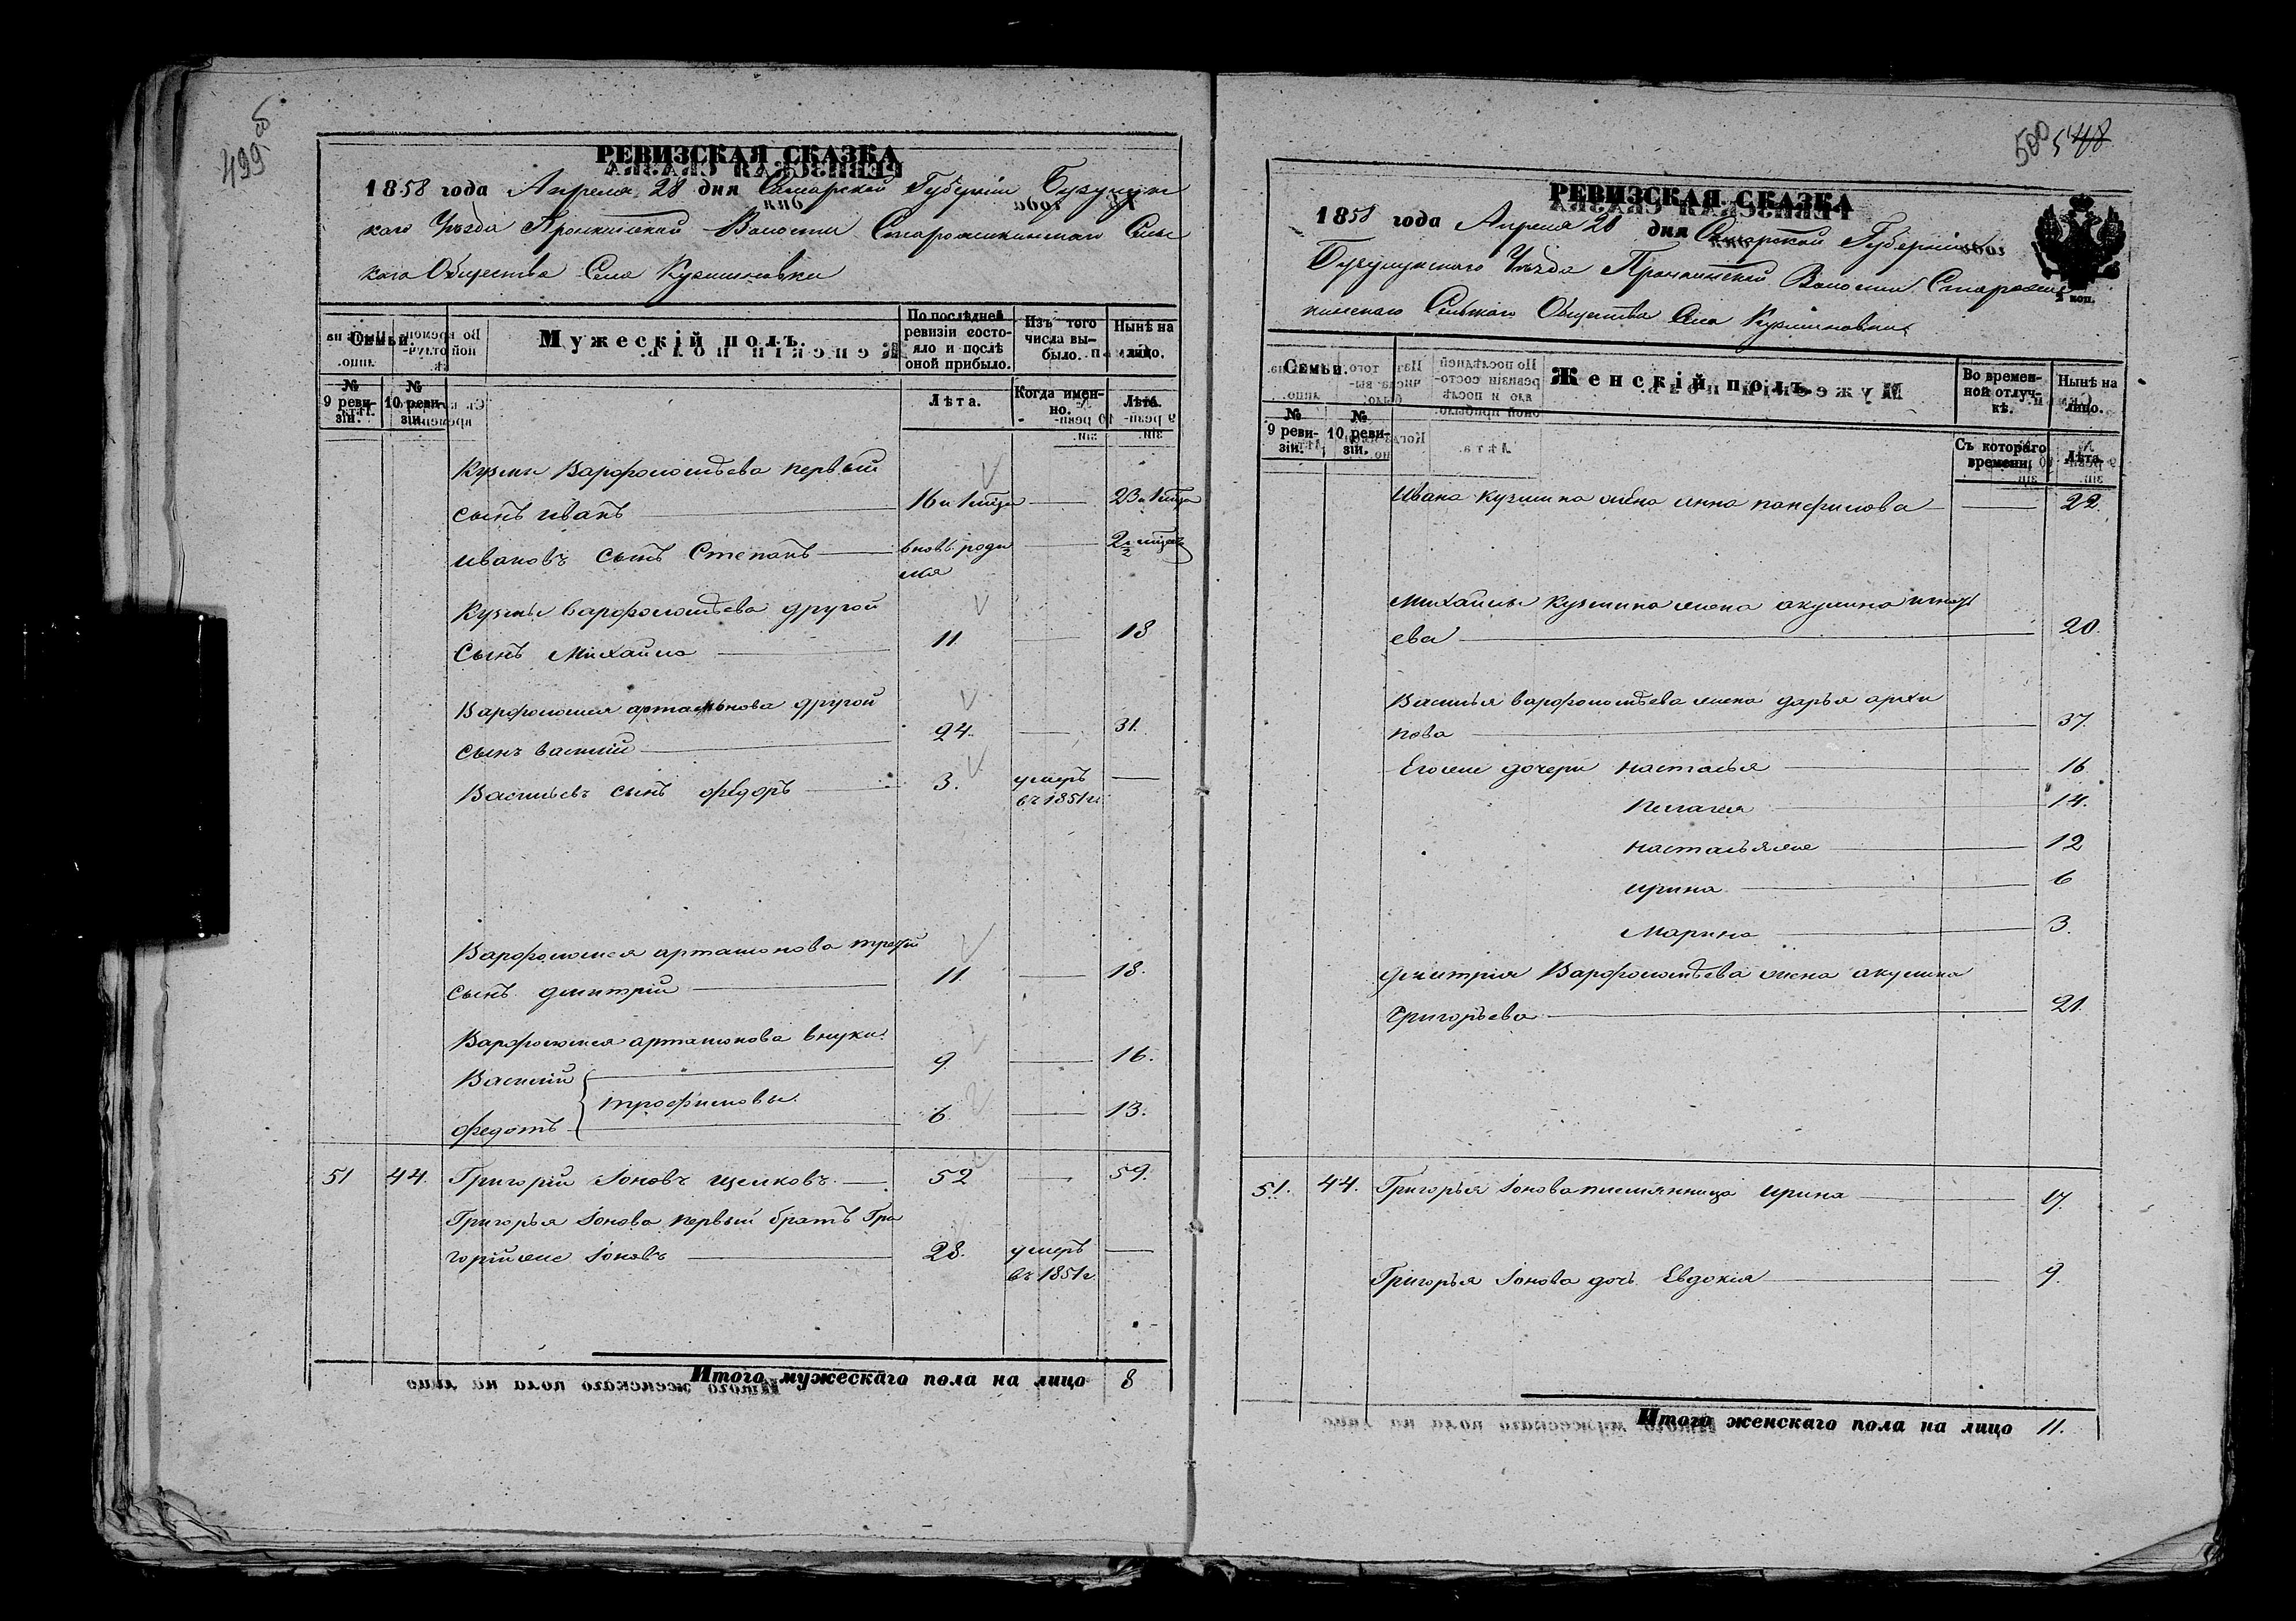 499 об
РЕВИЗСКАЯ СКАЗКА
1858 года Апреля 28 дня Самарской Губерніи Бузулукс
каго Уѣзда Пронкинской Волости Сельс
каго Общества Села Кузминовки
Семьи.
Мужескій полъ.
По послѣдней ревизіи состо-
яло и послѣ
оной прибыло.
Изъ того
числа вы-
было.
Нынѣ на
лицо.
№
9 реви-
зіи.
№
10 реви-
зіи.
Лѣта.
Когда имен-
но.
Лѣта.
Кузмы Варфоломѣева первый
сынъ иванъ 16 и 1 мѣца 23 и 1 мѣца
ивановъ сынъ Степанъ вновь роди 2 1/2 мѣсец
лся
Кузмы Варфоломѣева другой
сынъ Михайла 11 18
Варфоломея артамонова другой
сынъ василій 24. 31.
Васильевъ сынъ федоръ 3. умеръ
въ 1851 г.
Варфоломея артамонова третій
сынъ дмитрій 11. 18.
Варфоломея артамонова внуки
Василій 9. 16.
трофимовы.
федотъ 6. 13.
51 44. Григорій Іоновъ щелковъ. 52 59.
Григорья Іонова первый братъ Гри
горійже Іоновъ 28. умеръ
въ 1851 г.
Итого мужескаго пола на лицо 8
500 548
РЕВИЗСКАЯ СКАЗКА
1858 года Апреля 28 дня Самарской Губерніи
Бузулукскаго Уѣзда Пронкинской Волости
Сельскаго Общества Села Кузминовки
2 коп.
Семьи.
Женскій полъ.
Во времен-
ной отлуч-
кѣ.
Нынѣ на
лицо.
№
9 реви-
зіи.
№
10 реви-
зіи.
Съ котораго
времени.
Лѣта.
Ивана Кузмина жена анна панфилова 22.
Михайлы Кузмина жена акулина игнать
ева 20.
Василья варфоломѣева жена дарья архи
пова 37.
Егоже дочери настасья 16.
пелагея 14.
настасьяже 12
ирина 6
Марина 3.
дмитрія Варфоломѣева жена акулина
Григорьева 21.
51. 44. Григорья Іонова племянница ирина 17.
Григорья Іонова дочь Евдокія 9.
Итого женскаго пола на лицо 11.